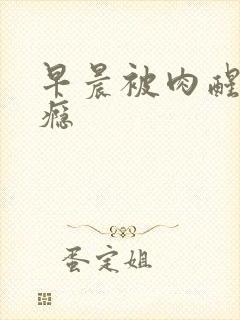 早晨被肉醒
瘾
蛋定姐